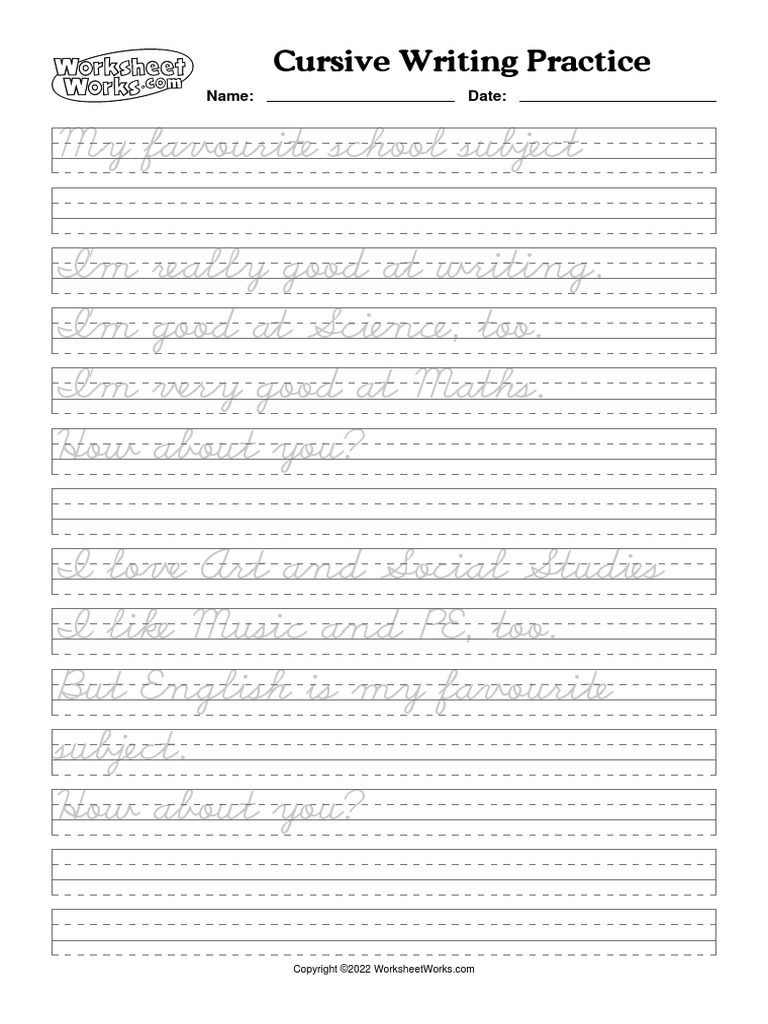 Worksheet
Works.com
Cursive Writing Practice
Name: Date:
My favourite school subject
I'm really good at writing.
I'm good at Science, too.
I'm very good at Maths.
How about you?
I love Art and Social Studies
I like Music and PE, too.
But English is my favourite
subject.
How about you?
Copyright ©2022 WorksheetWorks.com